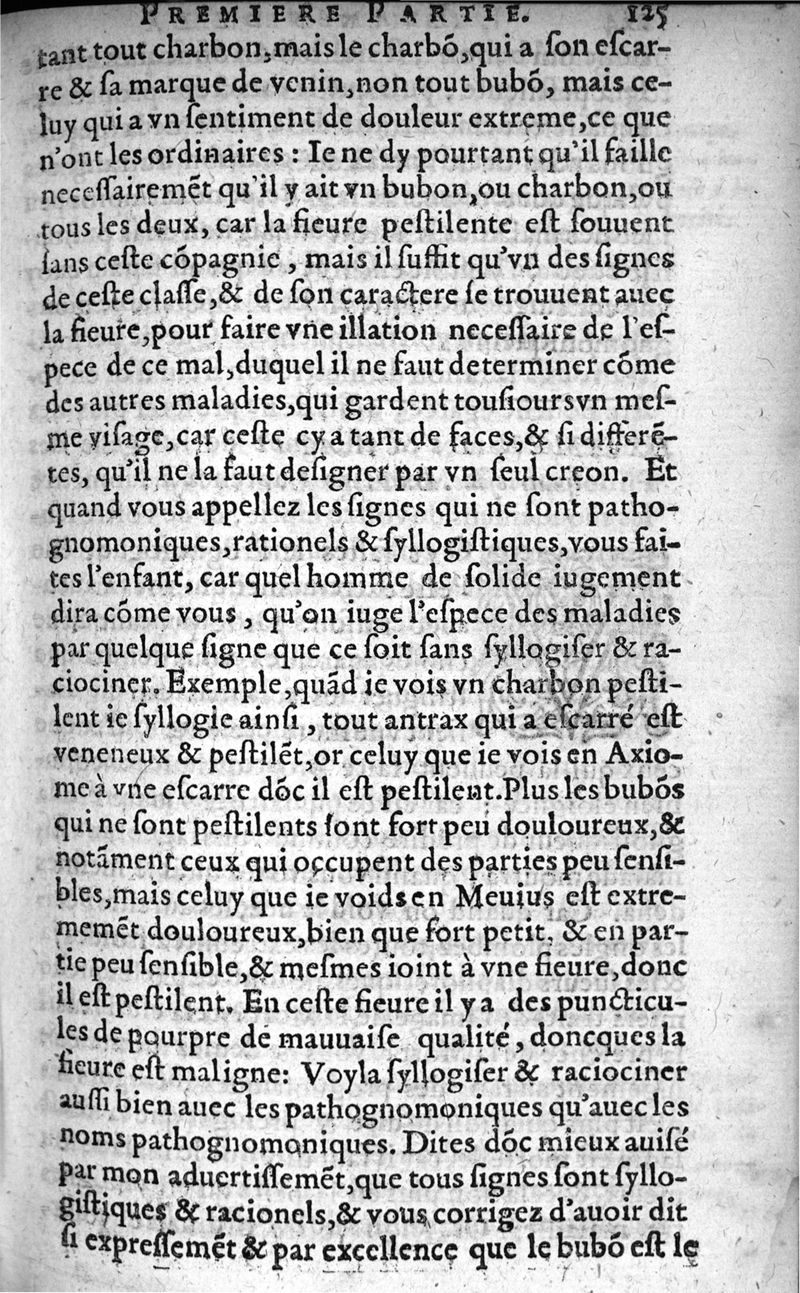 PREMIERE PARTIE. 125
tant tout charbon, mais le charbõ, qui a ſon eſcar-
re & ſa marque de venin, non tout bubõ, mais ce-
luy qui a vn ſentiment de douleur extreme, ce que
n'ont les ordinaires : Ie ne dy pourtant qu'il faille
neceſſairemẽt qu'il y ait vn bubon, ou charbon, ou
tous les deux, car la fieure peſtilente eſt ſouuent
ſans ceſte cõpagnie, mais il ſuffit qu'vn des ſignes
de ceſte claſſe, & de ſon caractere ſe trouuent auec
la fieure, pour faire vne illation neceſſaire de l'eſ-
pece de ce mal, duquel il ne faut determiner cõme
des autres maladies, qui gardent touſiours vn meſ-
me viſage, car ceſte cy a tant de faces, & ſi differẽ-
tes, qu'il ne la faut deſigner par vn ſeul creon. Et
quand vous appellez les ſignes qui ne ſont patho-
gnomoniques, rationels & ſyllogiſtiques, vous fai-
tes l'enfant, car quel homme de ſolide iugement
dira cõme vous, qu'on iuge l'eſpece des maladies
par quelque ſigne que ce ſoit ſans ſyllogiſer & ra-
ciociner. Exemple, quãd ie vois vn charbon peſti-
lent ie ſyllogie ainſi, tout antrax qui a eſcarré eſt
veneneux & peſtilẽt, or celuy que ie vois en Axio-
me à vne eſcarre dõc il eſt peſtilent. Plus les bubõs
qui ne ſont peſtilents ſont fort peu douloureux, &
notãment ceux qui occupent des parties peu ſenſi-
bles, mais celuy que ie voids en Meuius eſt extre-
memẽt douloureux, bien que fort petit, & en par-
tie peu ſenſible, & meſmes ioint à vne fieure, donc
il eſt peſtilent. En ceſte fieure il y a des puncticu-
les de pourpre de mauuaiſe qualité, doncques la
fieure eſt maligne: Voyla ſyllogiſer & raciociner
auſſi bien auec les pathognomoniques qu'auec les
noms pathognomoniques. Dites dõc mieux auiſé
par mon aduertiſſemẽt, que tous ſignes ſont ſyllo-
giſtiques & racionels, & vous corrigez d'auoir dit
ſi expreſſemẽt & par excellence que le bubõ eſt le